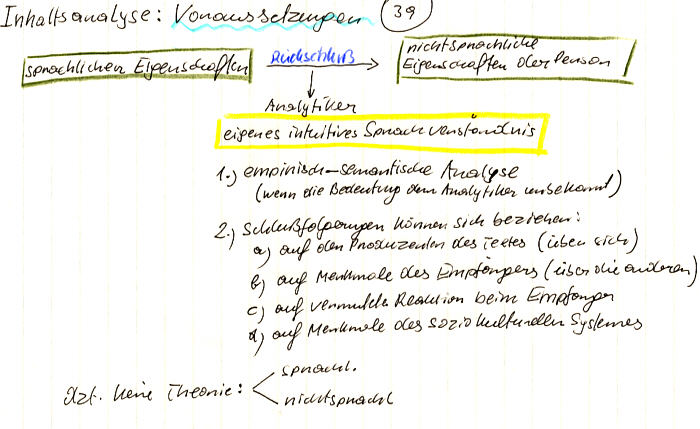 Inhaltsanalyse: Voraussetzungen 39
sprachlichen Eigenschaften Rückschluß nichtsprachliche
Eigenschaften der Person
Analytiker
eigenes intuitives Sprachverständnis
1.) empirisch-semantische Analyse
(wenn die Bedeutung dem Analytiker unbekannt)
2.) Schlußfolgerungen können sich beziehen:
a) auf den Produzenten des Textes (über sich)
b) auf Merkmale des Empfängers (über die anderen)
c) auf vermutete Reaktion beim Empfänger
d) auf Merkmale des soziokulturellen Systemes
sprachl.
Jzt. keine Theorie:
nichtsprachl